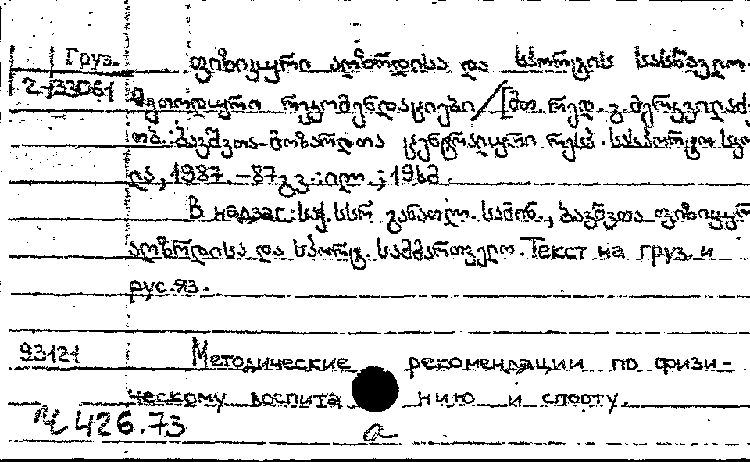 Груз. ფიზიკური აღზრდისა და სპორტის სასწავლო-
2-/33061 მეთოდური რეკომენდაციები / [მთ. რედ. გ.
თბ.: ბავშვთა-მოზარდთა ცენტრალური რესპ. სასპორტო
1987. - 87 გვ.: ილ.;
В надзаг.: საქ. სსრ განათლ. სამინ., ბავშვთა ფიზიკურ
აღზრდისა და სპორტ. სამმართველო. Текст на груз. и
рус. яз.
93121 Методические рекомендации по физи-
ческому воспита нию и спорту.
426.73 а